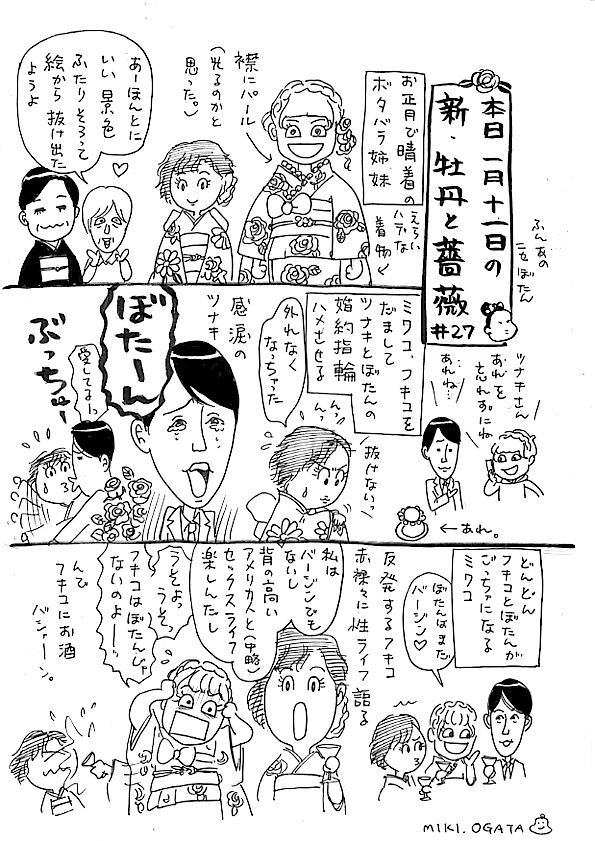 本日一月十一日の
新・牡丹と薔薇
#27
お正月で晴着の
ボタバラ姉妹
襟にパール
(光るのかと
思った。)
えらい
ハデな
着物
あーほんとに
いい景色
ふたりそろって
絵から抜け出た
ようよ
ツナキさん
あれを
忘れずにね
あれね…
←あれ。
ミワコ、フキコを
だまして
ツナキとぼたんの
婚約指輪
ハメさせる
外れなく
なっちゃった
んっ
んっ
抜けないっ
感涙の
ツナキ
ぼたーん
愛してるーっ
ぶっちゅー
どんどん
フキコとぼたんが
ごっちゃになる
ミワコ
ぼたんはまだ
バージン♡
反発するフキコ
赤裸々に性ライフ語る
私は
バージンでも
ないし
背の高い
アメリカ人と(中略)
セックスライフ
楽しんだし
うそよっ
うそっ
フキコはぼたんじゃ
ないのよーーっ
んで
フキコにお酒
バシャーン。
MIKI.OGATA